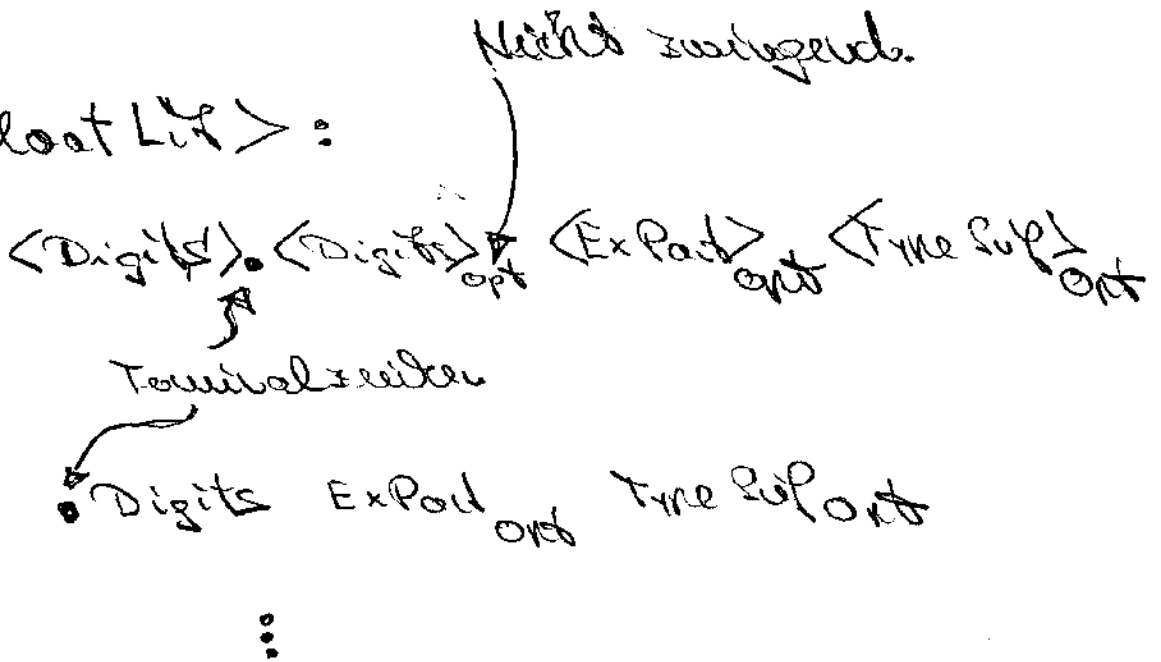 Nicht zwingend.
loat Lit>:
<Digits>.<Digits>opt <ExPart>opt <TypeSuf>opt
Terminalzeichen
. Digits ExPart opt TypeSuf opt
⋮